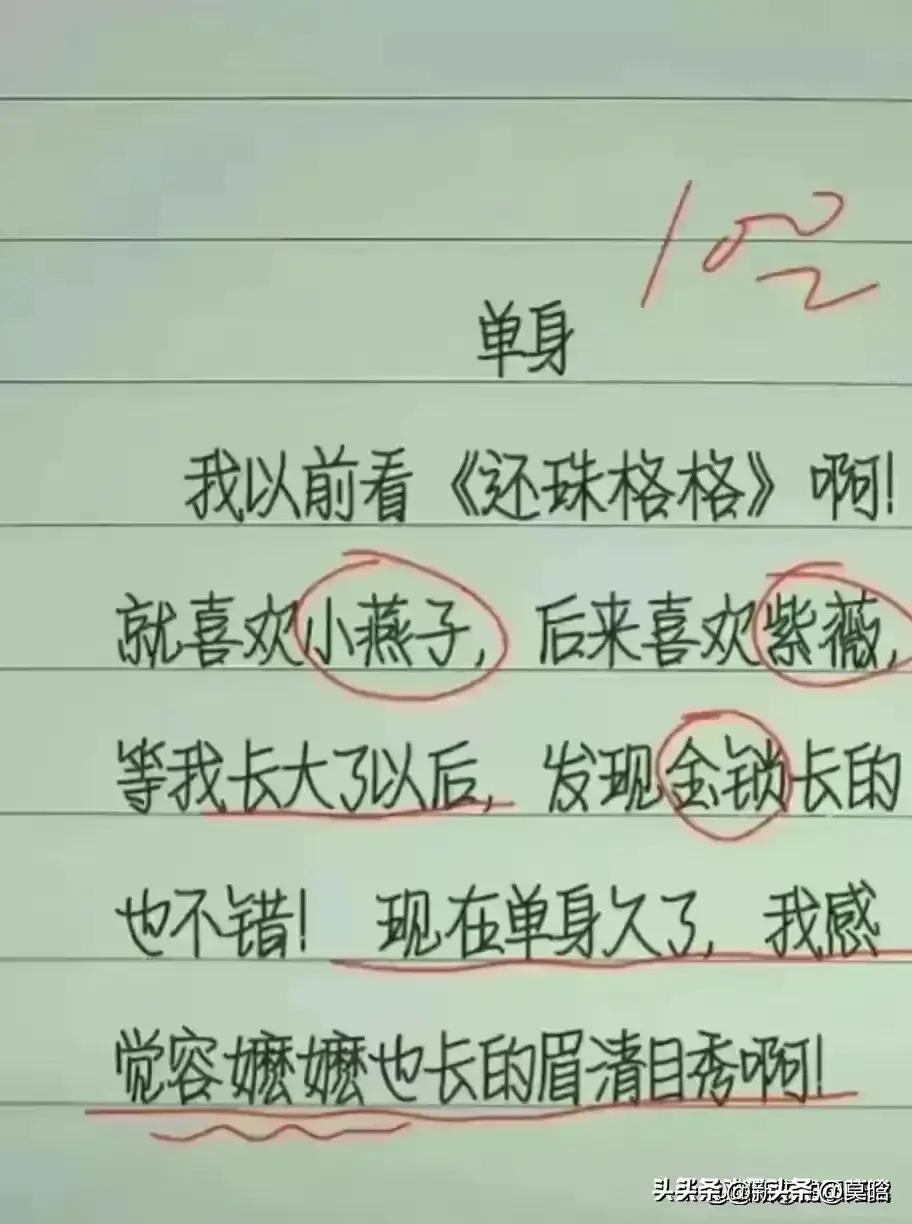 100
单身
我以前看《还珠格格》啊!
就喜欢小燕子,后来喜欢紫薇,
等我长大了以后,发现金锁长的
也不错! 现在单身久了,我感
觉容嬷嬷也长的眉清目秀啊!
头条